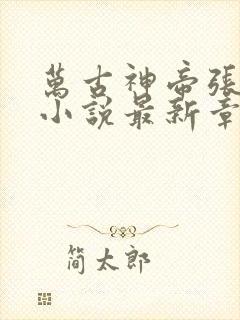 萬古神帝張
小說最新章
简太郎